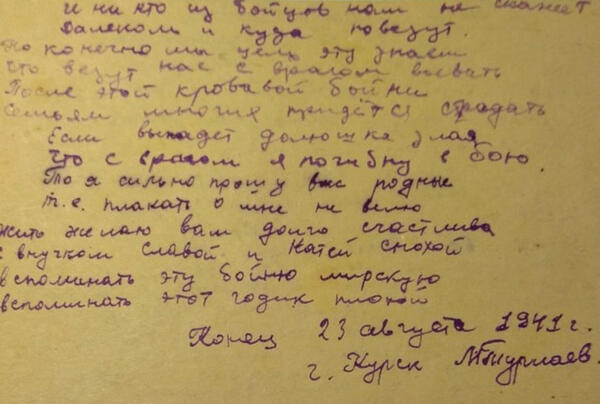 и никто из бойцов нам не скажет
далеком и куда повезут.
Но конечно мы цель эту знаем
что везут нас с врагом воевать
После этой кровавой бойни
семьям многих придётся страдать
Если выпадет долюшка злая
что с врагом я погибну в бою.
То я сильно прошу вас родные
т.е. плакать о мне не велю
жить желаю вам долго счастлива
с внучком славой и Катей снохой
вспоминать эту бойню мирскую
вспоминать этот годик плохой
Конец 23 августа 1941 г.
г. Курск